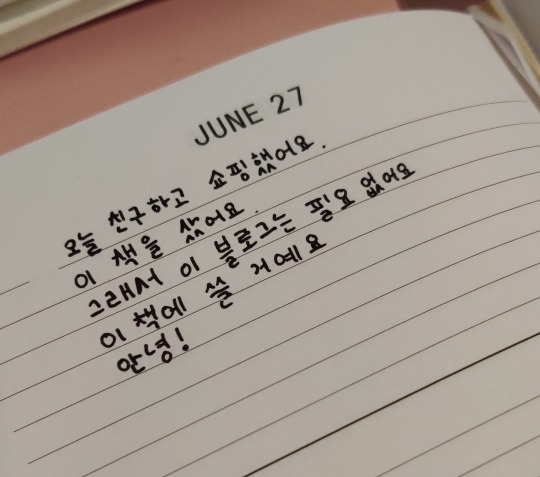 JUNE 27
오늘 친구하고 쇼핑했어요.
이 책을 샀어요.
그래서 이 블로그는 필요 없어요
이 책에 쓸 거예요
안녕!